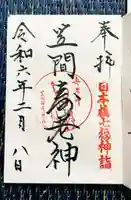 奉拝
日本橋七福神詣
笠間寿老神
令和六年二月八日